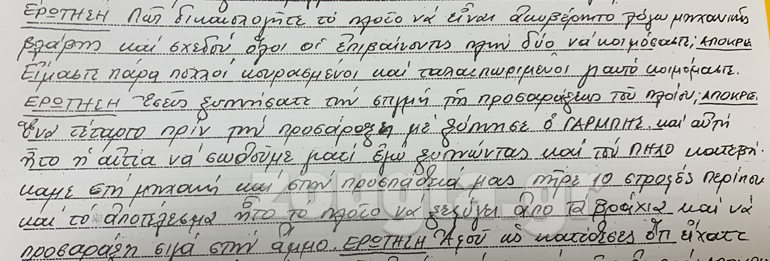 ΕΡΩΤΗΣΗ Πως δικαιολογήτε το πλοίο να είναι ακυβέρνητο λόγω μηχανικής
βλάβης και σχεδόν όλοι οι επιβαίνοντες πλην δύο να κοιμόσαστε; ΑΠΟΚΡΣ
Είμαστε πάρα πολλοί κουρασμένοι και ταλαιπωρημένοι γιαυτό κοιμόμαστε.
ΕΡΩΤΗΣΗ Εσείς ξυπνήσατε την στιγμή της προσαράξεως του πλοίου; ΑΠΟΚΡΣ
Ένα τέταρτο πριν την προσάραξη με ξύπνησε ο ΓΑΡΜΠΗΣ και αυτή
ήτο η αιτία να σωθούμε γιατί εγώ ξυπνώντας και τον ΠΗΛΟ κατεβή-
καμε στη μηχανή και στην προσπάθειά μας πήρε 10 στροφές περίπου
και το αποτέλεσμα ήτο το πλοίο να ξεφύγει απο τα βράχια και να
προσαράξη σιγά στην άμμο. ΕΡΩΤΗΣΗ Αφού ως κατέθεσες ότι είχατε
zougla.gr